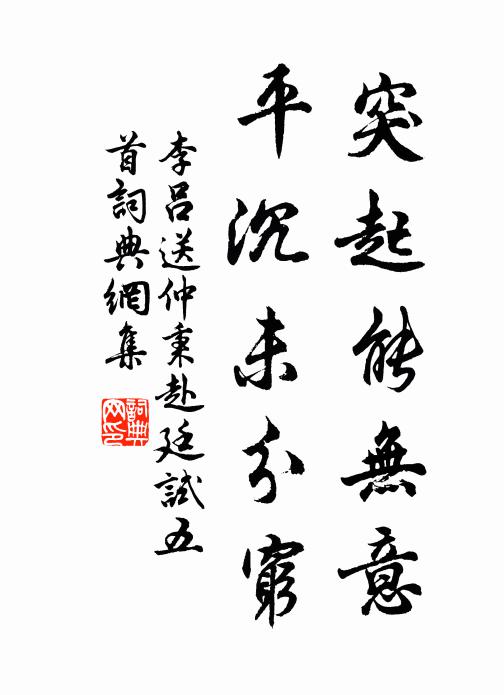 突起能無意
平沉未分窮
李呂送仲秉赴廷試五
首詞典網集
詞典
网印